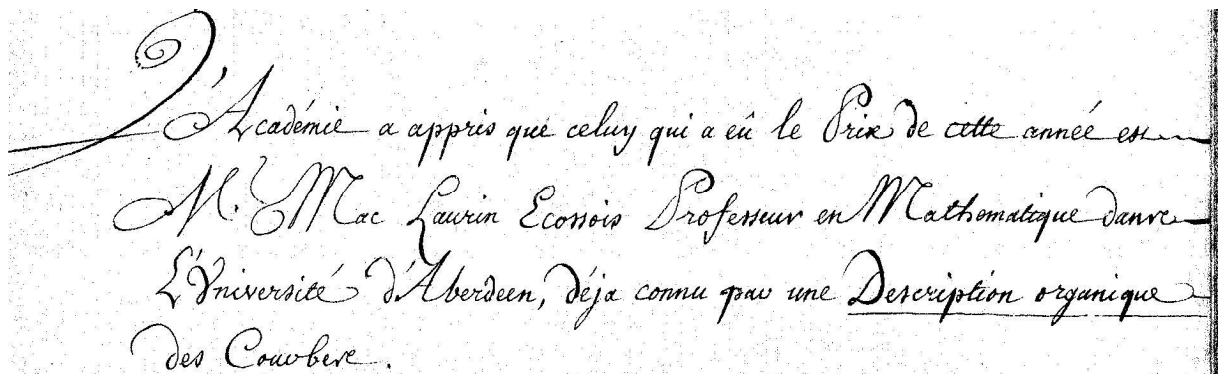 L'Académie a appris que celuy qui a eû le Prix de cette année est
M. Mac Laurin Ecossois Professeur en Mathematique dans
L'Université d'Aberdeen, déja connu par une Description organique
des Courbes.